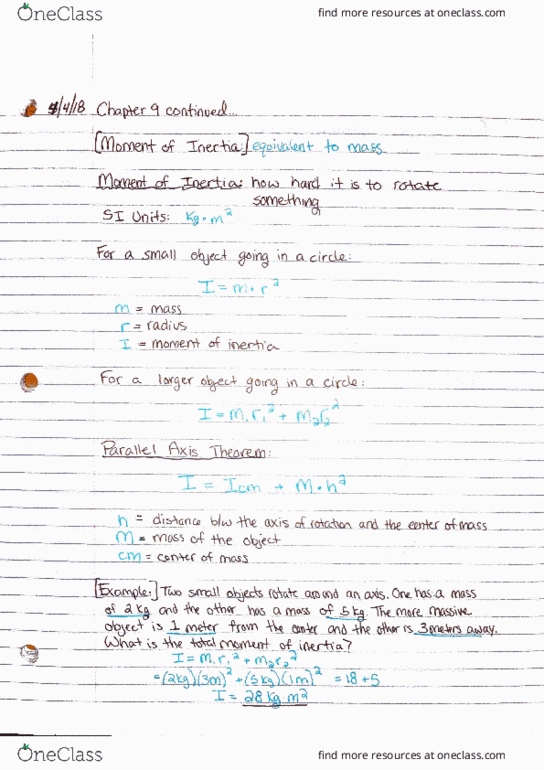 OneClass
find more resources at oneclass.com
4/4/18 Chapter 9 continued...
[Moment of Inertia] equivalent to mass
Moment of Inertia: how hard it is to rotate
something
SI Units: kg·m²
For a small object going in a circle:
I = m·r²
m = mass
r = radius
I = moment of inertia
For a larger object going in a circle:
I = m₁r₁² + m₂r₂²
Parallel Axis Theorem:
I = Icm + M·h²
h = distance b/w the axis of rotation and the center of mass
M = mass of the object
cm = center of mass
[Example:] Two small objects rotate around an axis. One has a mass
of 2 kg and the other has a mass of 5 kg. The more massive
object is 1 meter from the center and the other is 3 meters away.
What is the total moment of inertia?
I = m₁r₁² + m₂r₂²
= (2kg)(3m)² + (5kg)(1m)² = 18 + 5
I = 28 kg m²
OneClass
find more resources at oneclass.com